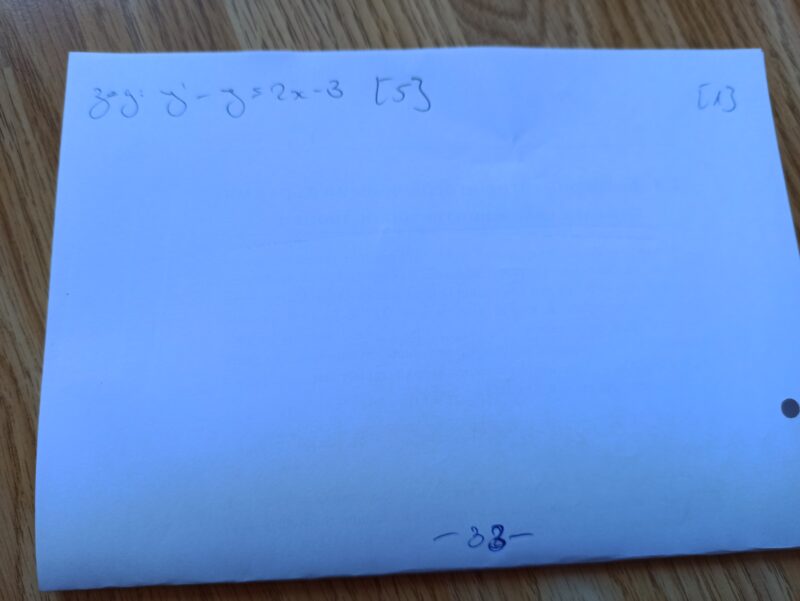 geg: y' - y = 2x - 3 [5] [1]
- 33 -